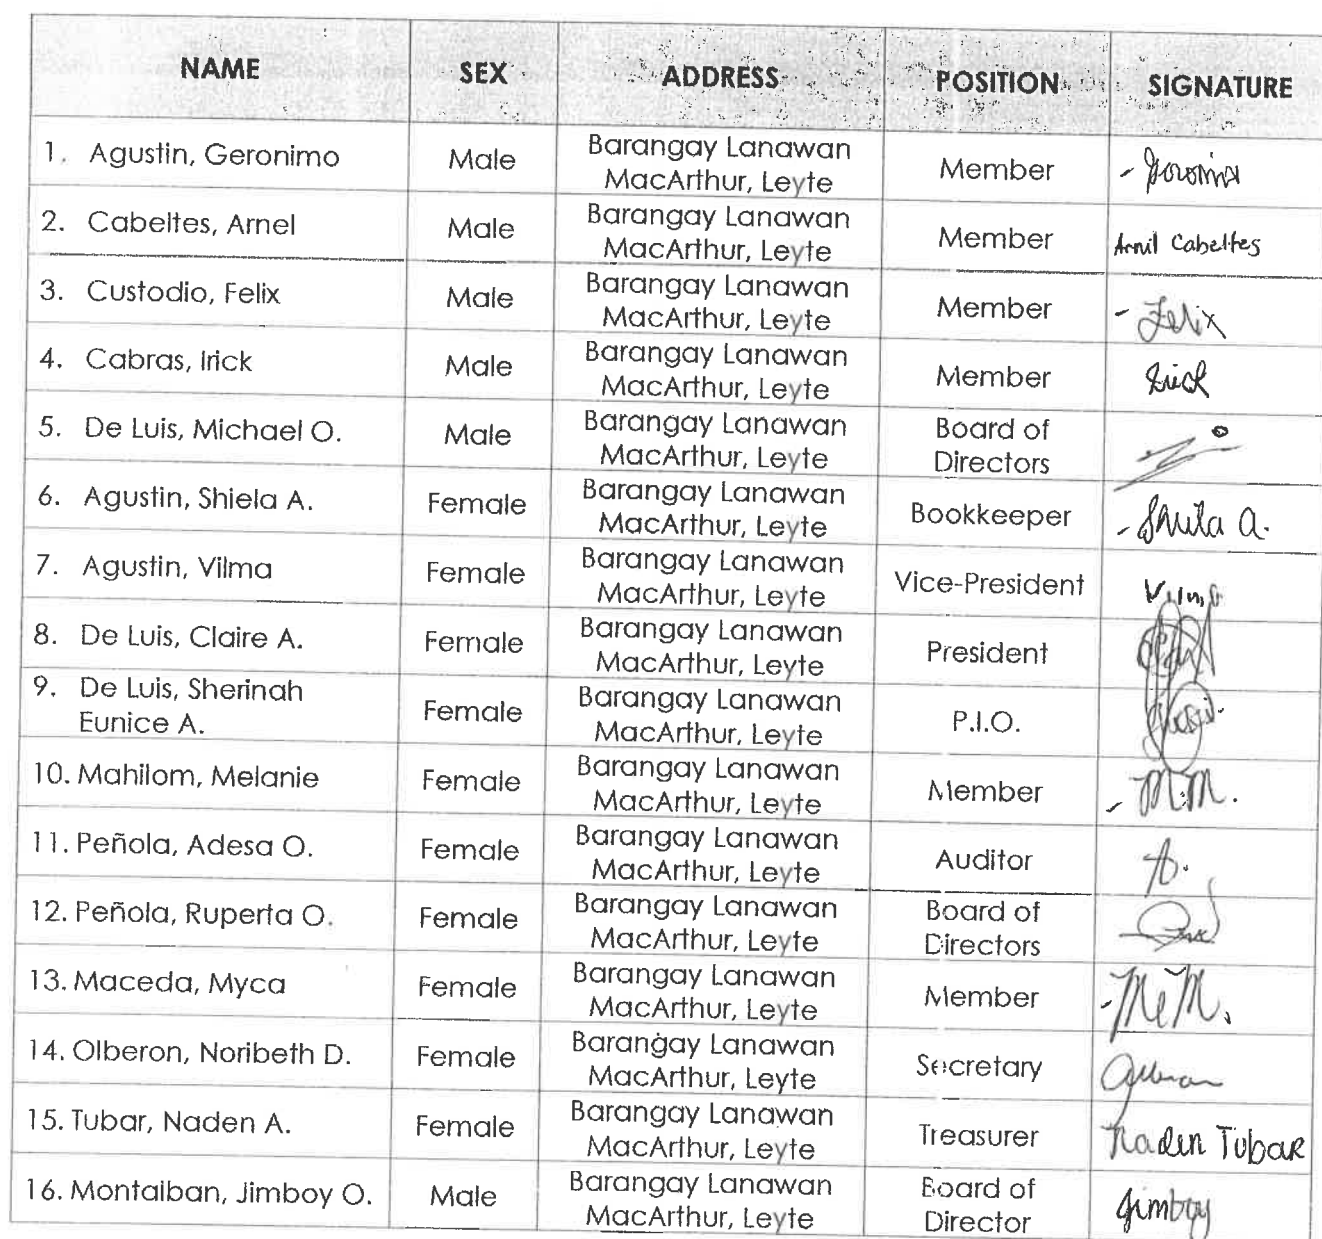 NAME SEX ADDRESS POSITION SIGNATURE
1. Agustin, Geronimo Male Barangay Lanawan MacArthur, Leyte Member - Geronimo
2. Cabeltes, Arnel Male Barangay Lanawan MacArthur, Leyte Member Arnil Cabeltes
3. Custodio, Felix Male Barangay Lanawan MacArthur, Leyte Member - Felix
4. Cabras, Irick Male Barangay Lanawan MacArthur, Leyte Member Irick
5. De Luis, Michael O. Male Barangay Lanawan MacArthur, Leyte Board of Directors
6. Agustin, Shiela A. Female Barangay Lanawan MacArthur, Leyte Bookkeeper - Shiela A.
7. Agustin, Vilma Female Barangay Lanawan MacArthur, Leyte Vice-President Vilma
8. De Luis, Claire A. Female Barangay Lanawan MacArthur, Leyte President
9. De Luis, Sherinah Eunice A. Female Barangay Lanawan MacArthur, Leyte P.I.O.
10. Mahilom, Melanie Female Barangay Lanawan MacArthur, Leyte Member - M.M.
11. Peñola, Adesa O. Female Barangay Lanawan MacArthur, Leyte Auditor
12. Peñola, Ruperta O. Female Barangay Lanawan MacArthur, Leyte Board of Directors
13. Maceda, Myca Female Barangay Lanawan MacArthur, Leyte Member
14. Olberon, Noribeth D. Female Barangay Lanawan MacArthur, Leyte Secretary
15. Tubar, Naden A. Female Barangay Lanawan MacArthur, Leyte Treasurer Naden Tubar
16. Montalban, Jimboy O. Male Barangay Lanawan MacArthur, Leyte Board of Director Jimboy